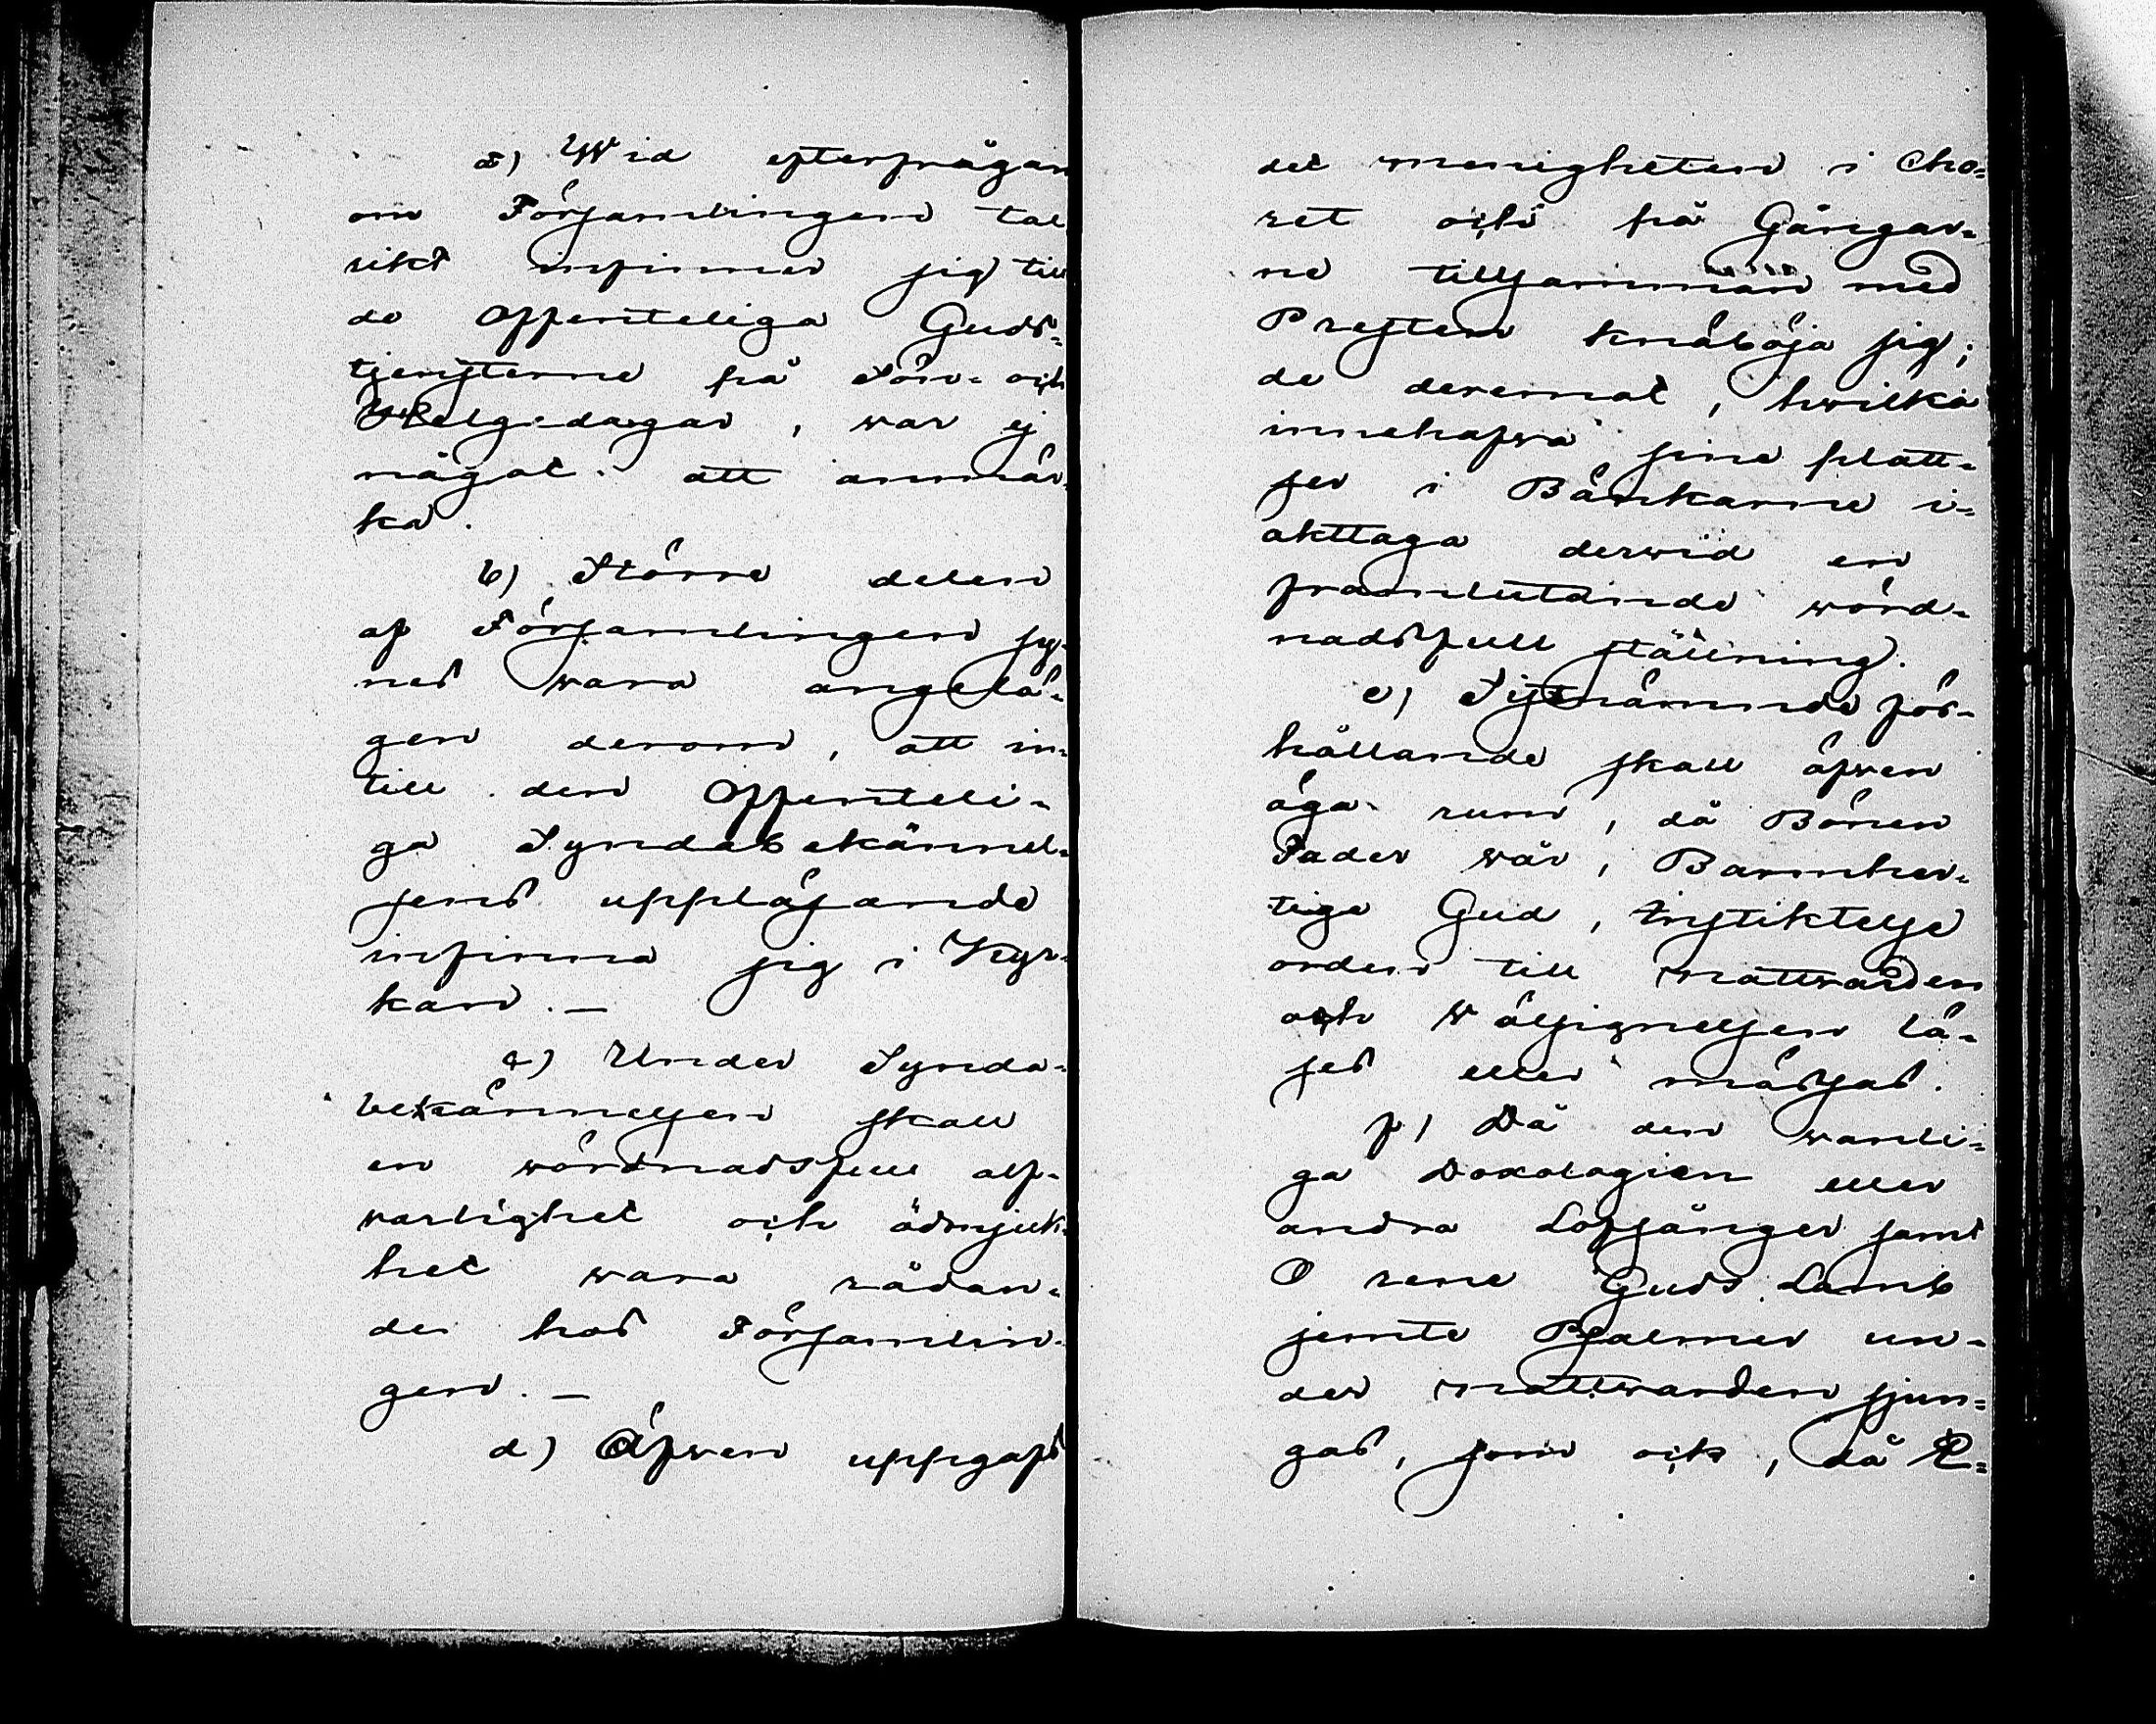 a) Wid efterfrågan
om Församlingen tal
rikt infinner sig till
de Offenteliga Guds-
tjensterne på Sön- och
Helgedagar, war ej
något att anmär-
ka.
b) Större delen
af Församlingen sy-
nes wara angelä-
gen derom, att in-
till den Offenteli-
ga Syndabekännel-
sens uppläsande
infinna sig i Kyr-
kan. —
c) Under Synda-
bekännelsen skall
en wördnadsfull alf-
warlighet och ödmjuk-
het wara rådan-
de hos Församlin-
gen. —
d) Äfwen uppgafs
det menigheten i Cho-
ret och på Gångar-
ne tillsamman med
Presten knäböja sig;
de deremot, hwilka
innehafwa sine platt-
ser i Bänkarne i-
akttaga derwid en
framlutande wörd-
nadsfull ställning.
e) Sistnämnde för-
hållande skall äfwen
äga rum, då Bönen
Fader wår, Barmher-
tige Gud, Instiktelse
orden till nattwarden
och Wälsignelsen lä-
ses eller mässas.
f) Då den wanli-
ga Doxologien eller
andra Lofsånger samt
O rene Guds Lamb
jemte Psalmer un-
der nattwarden sjun-
gas, som ock, då E-